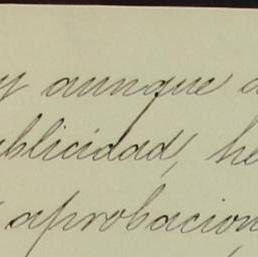 y aunque a
ublicidad, he
aprobacion